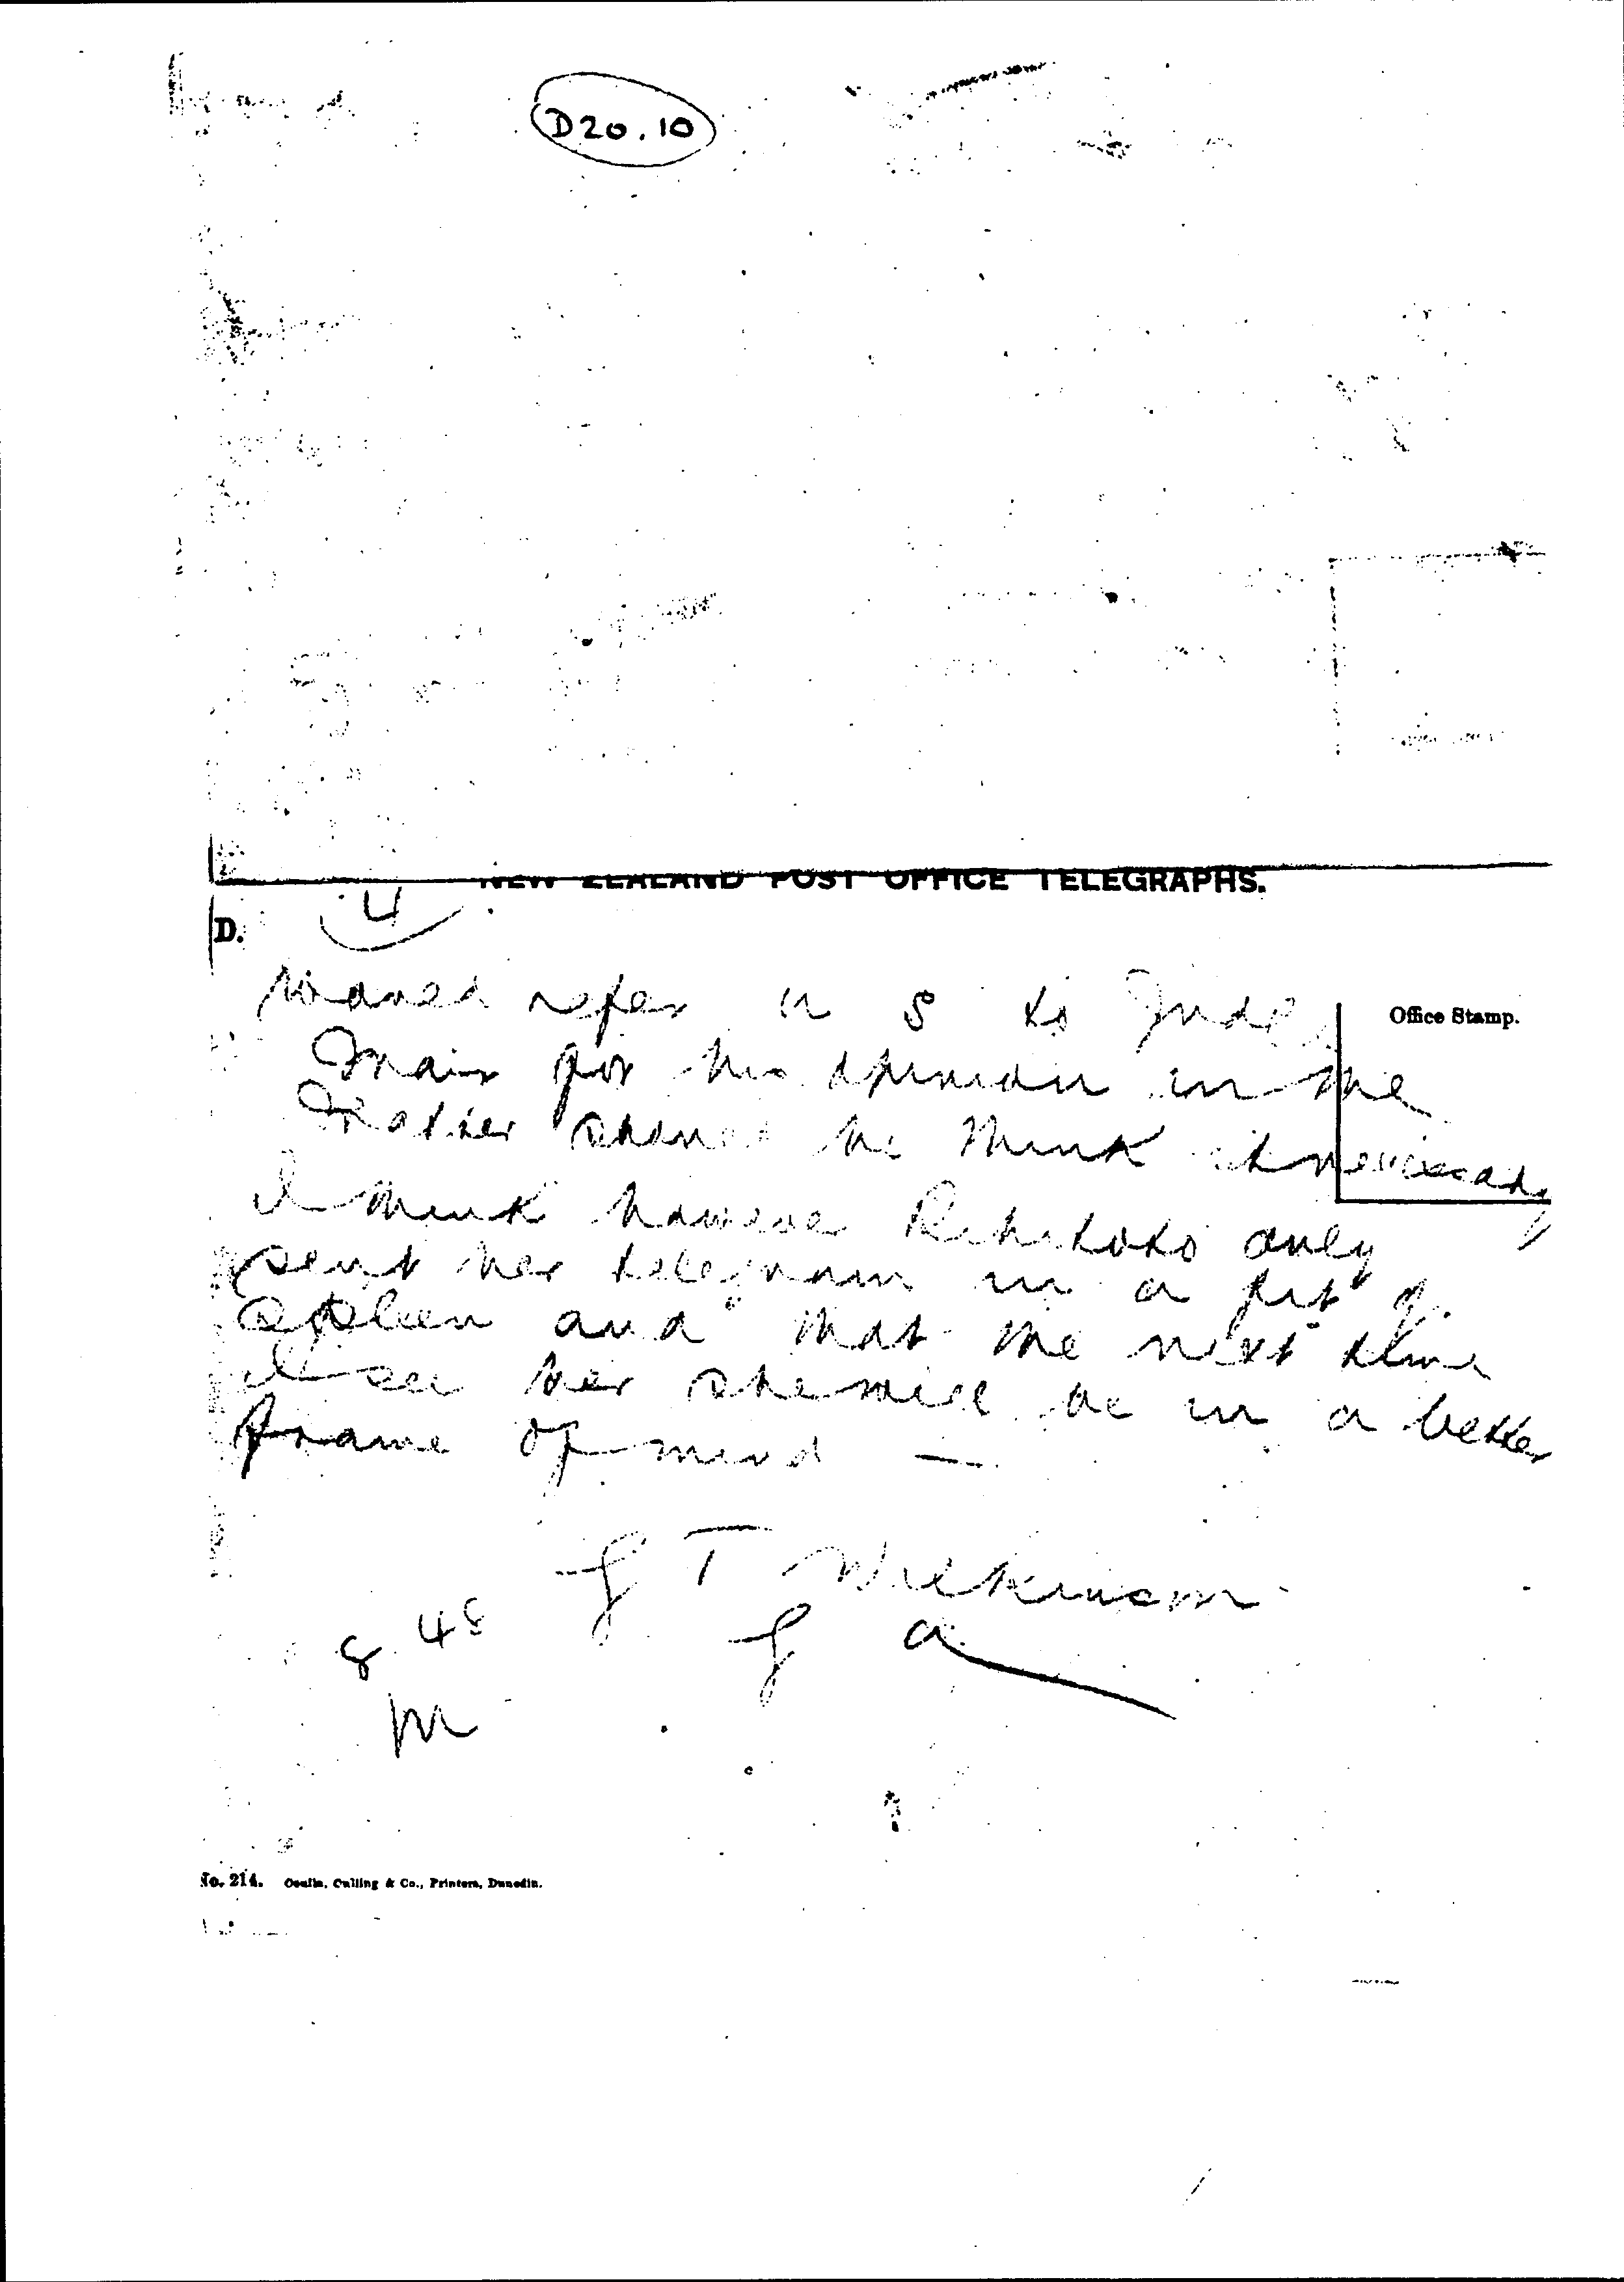 D20.10
NEW ZEALAND POST OFFICE TELEGRAPHS.
D.
4
refer to Judge
Office Stamp.
Mair for his opinion in the
matter should he think it necessary
I think however only
sent her telegram in a fit of
spleen and that the next time
I see her she will be in a better
frame of mind —
G T Wilkinson
G A
8.48
M
No. 214. Coulls, Culling & Co., Printers, Dunedin.